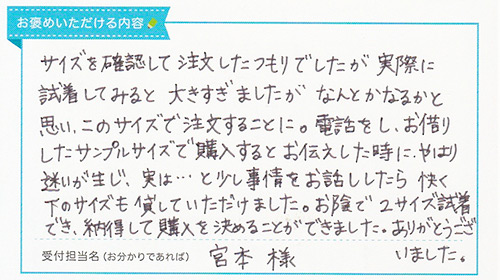 お褒めいただける内容
サイズを確認して注文したつもりでしたが 実際に
試着してみると 大きすぎましたが なんとかなるかと
思い、このサイズで注文することに。電話をし、お借り
したサンプルサイズで購入するとお伝えした時に、やはり
迷いが生じ、実は…と少し事情をお話ししたら 快く
下のサイズも貸していただけました。お陰で2サイズ試着
でき、納得して購入を決めることができました。ありがとうござ
いました。
受付担当名(お分かりであれば) 宮本 様